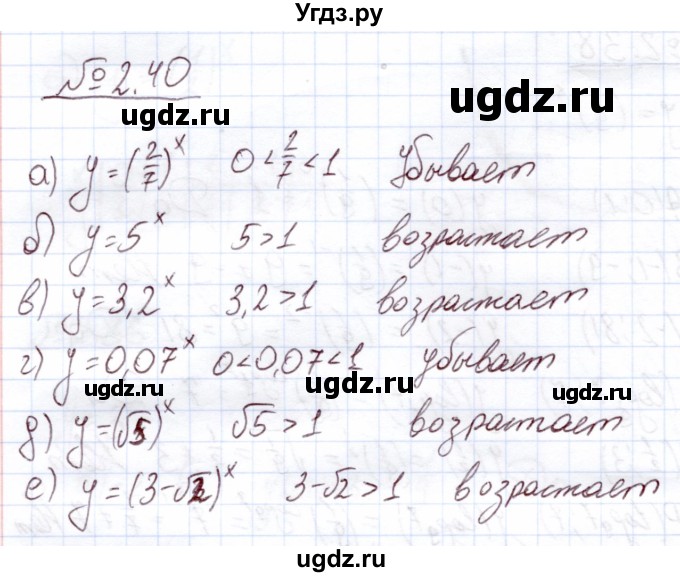 Угдз.ру
№ 2.40
ugdz.ru
а) y = (2/7)^x 0 < 2/7 < 1 убывает
б) y = 5^x 5 > 1 возрастает
в) y = 3,2^x 3,2 > 1 возрастает
г) y = 0,07^x 0 < 0,07 < 1 убывает
ugdz.ru ugdz.ru
д) y = (√5)^x √5 > 1 возрастает
ugdz.ru
е) y = (3-√2)^x 3-√2 > 1 возрастает
ugdz.ru
ugdz.ru